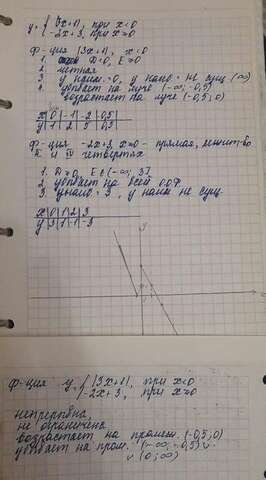 y = { |3x+1|, при x<0
{ -2x+3, при x≥0
Ф-ция |3x+1|, x<0
1. D<0, E≥0
2. четная
3. y наим.=0, y наиб - не сущ (∞)
4. убывает на луче (-∞; -0,5)
возрастает на луче (-0,5; 0)
x|0|-1|-2|0,5|
y|1|2|5|0,5|
Ф-ция -2x+3, x≥0 - прямая,
и IV четвертях
1. D≥0 E(-∞; 3]
2. убывает на всей О.О.Ф.
3. yнаиб=3, y наим не сущ.
x|0|1|2|3
y|3|1|-1|-3
Ф-ция y= { |3x+1|, при x<0
{ -2x+3, при x≥0
непрерывна,
не ограничена
возрастает на промеж. (-0,5; 0)
убывает на пром. (-∞; -0,5) ∪
∪ (0; ∞)